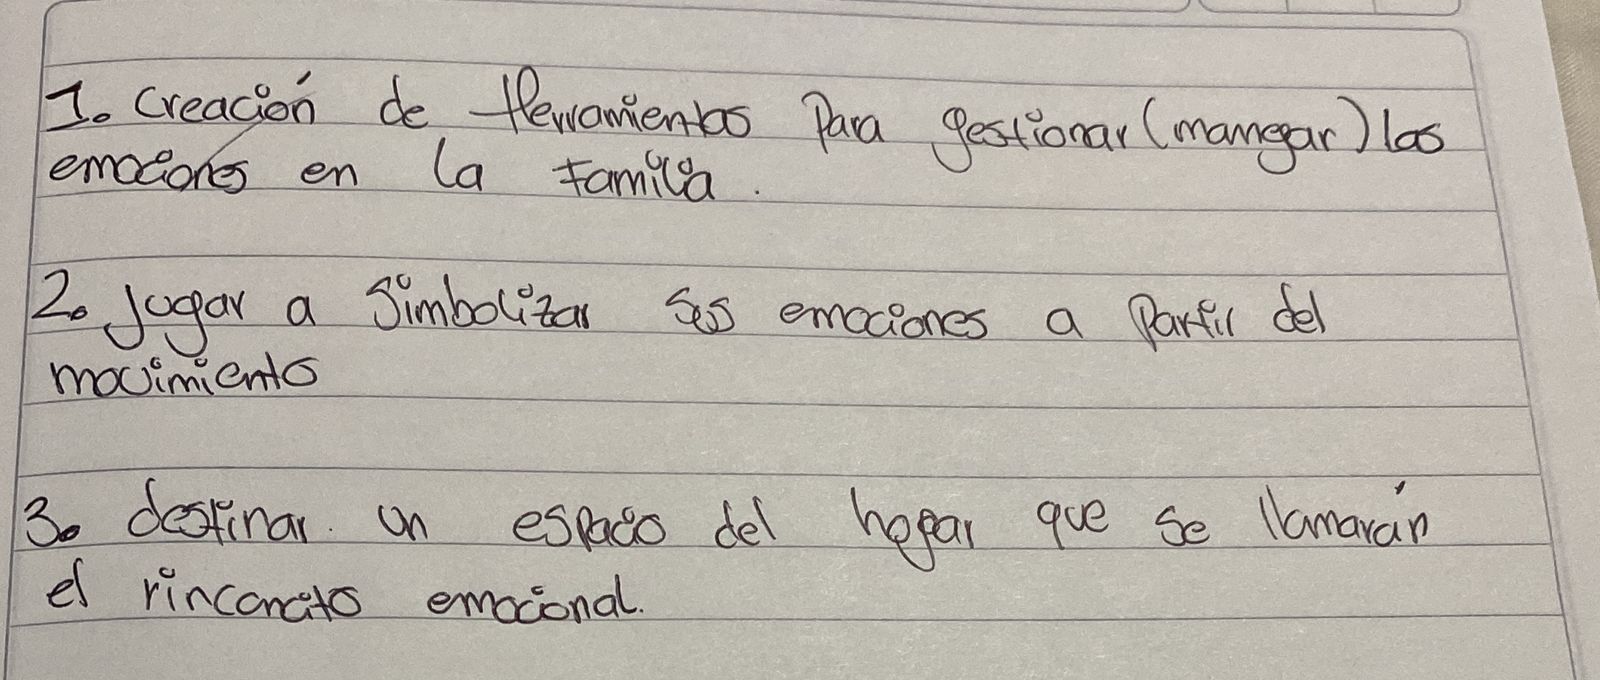 1. Creación de Herramientas Para gestionar (manegar) las
emociones en la familia.
2. Jugar a Simbolizar sus emociones a Partir del
movimiento
3. destinar un espacio del hogar que se llamarán
el rinconcito emocional.